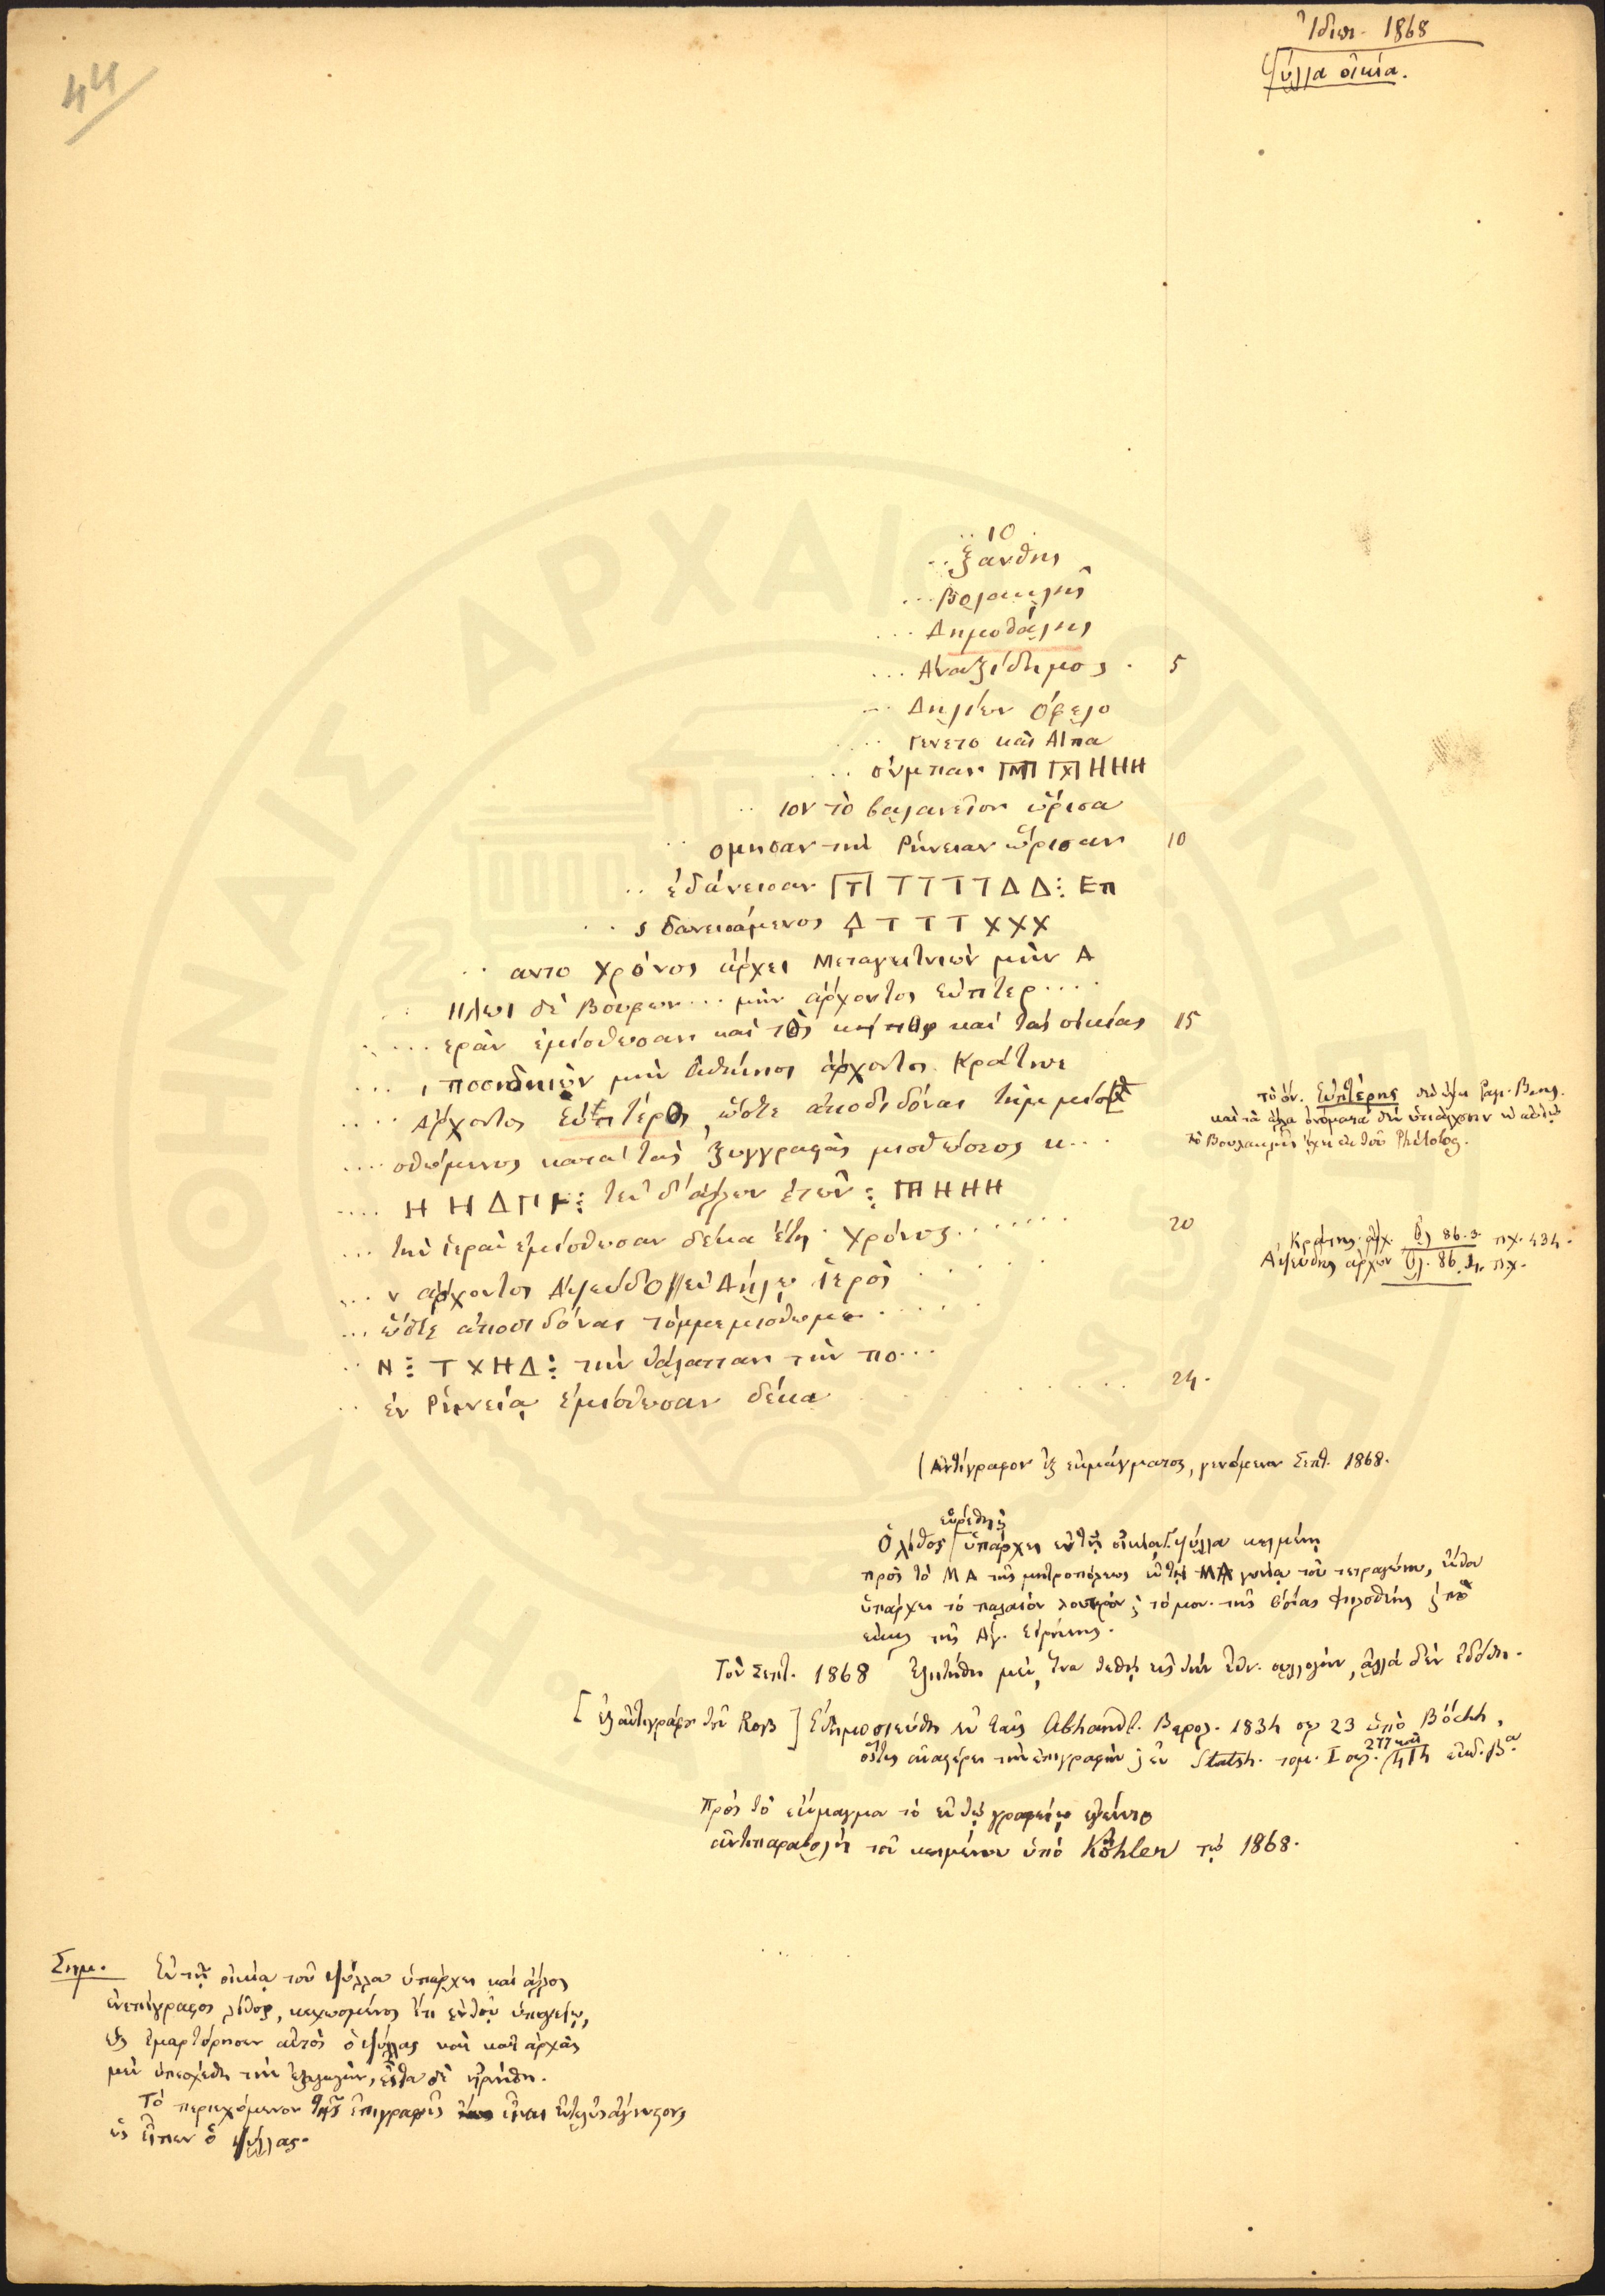 44
Ἰδιωτ. 1868
Ψύλλα οἰκία.
.. ιο .
.. Ξάνθης
... Βολακλῆς
... Δημοθάλης
... Ἀναξίδημος . 5
... Δηλίων ὀφελο
.... γενετο καὶ Αιπα
... σύμπαν ΗΗΗ
.. ιον τὸ βαλανεῖον ὥρισα
.. ομησαν τὴν Ῥήνειαν ὥρισαν 10
.. ἐδάνεισαν Τ Τ Τ Τ Δ Δ ⁝ Επ
... ς δανεισάμενος Δ Τ Τ Τ Χ Χ Χ
.. αντο χρόνος ἄρχει Μεταγειτνιὼν μὴν Α
... ηλωι δὲ Βουφων... μὴν ἄρχοντος Εὐπτερ....
..... ερὰν ἐμίσθωσαν καὶ τὸς κήπος καὶ τὰς οἰκίας 15
.... ι Ποσιδηιὼν μὴν Ἀθήνησι ἄρχοντος Κράτητο
.... ἄρχοντος Εὐπτέρος, ὥστε ἀποδιδόναι τὴμ μίσθ
.... σθωμένος κατὰ τὰς ξυγγραφὰς μισθώσεως κ...
.... Η Η Δ Π Ι- ⁝ τῶν δ' ἄλλων ἐτῶν ⁝ ΗΗΗ
... τὴν ἱερὰν ἐμίσθωσαν δέκα ἔτη χρόνος....... 20
... ν ἄρχοντος Ἀψεύδο ἐν Δήλῳ ἱερὸς .....
... ὥστε ἀποδιδόναι τὸμ μεμισθωμε......
.. Ν ⁝ Τ Χ Η Δ ⁝ τὴν θάλατταν τὴν πο...
.. ἐν Ῥηνείᾳ ἐμίσθωσαν δέκα ......... 24.
τὸ ὄν. Εὐπτέρης δὲν ἔχει
καὶ τὰ ἄλλα ὀνόματα δὲν ὑπάρχουν
τὸ Βουλακλῆς ἔχει ἐκ τοῦ Philolog.
Κράτης ἄρχ. Ὀλ 86.3. πΧ. 434.
Ἀψεύδης ἄρχων Ὀλ. 86.4. πΧ.
(Ἀντίγραφον ἐξ ἐκμάγματος, γενόμενον Σεπτ. 1868.
εὑρέθη
Ὁ λίθος ὑπάρχει ἐν τῇ οἰκίᾳ Ψύλλα κειμένῃ
πρὸς τὸ ΜΑ τῆς μητροπόλεως ἐν τῇ ΜΑ γωνίᾳ τοῦ τετραγώνου, ἔνθα
ὑπάρχει τὸ παλαιὸν λουτρὸν τὸ μον. τῆς ὁσίας Φιλοθέης
τῆς Ἁγ. Εἰρήνης.
Τὸν Σεπτ. 1868 ἐζητήθη μὲν ἵνα τεθῇ εἰς τὴν ἐθν. συλλογήν, ἀλλὰ δὲν ἐδόθη.
[ἐξ ἀντιγράφου τοῦ Roß] Ἐδημοσιεύθη ἐν ταῖς Abhandl. Βερολ. 1834 σελ 23 ὑπὸ Böckh,
ὅστις ἀναφέρει τὴν ἐπιγραφὴν ἐν Statsh. τομ. I σελ. 277 καὶ 414 ἐκδ. βα.
Πρὸς τὸ ἔκμαγμα τὸ ἐν τῷ γραφείῳ ἐγένετο
ἀντιπαραβολὴ τοῦ κειμένου ὑπὸ Köhler τῷ 1868.
Σημ. Ἐν τῇ οἰκίᾳ τοῦ Ψύλλα ὑπάρχει καὶ ἄλλος
ἐνεπίγραφος λίθος, κεχωσμένος ἔτι ἐν τῷ ὑπογείῳ,
ὡς ἐμαρτύρησεν αὐτὸς ὁ Ψύλλας καὶ κατ' ἀρχὰς
μὲν ὑπεσχέθη τὴν ἐξαγωγήν, εἶτα δὲ ἠρνήθη.
Τὸ περιεχόμενον τῆς ἐπιγραφῆς εἶναι ἐντελῶς ἄγνωστον,
ὡς εἶπεν ὁ Ψύλλας.
ΕΝ ΑΘΗΝΑΙΣ ΑΡΧΑΙΟΛΟΓΙΚΗ ΕΤΑΙΡΕΙΑ